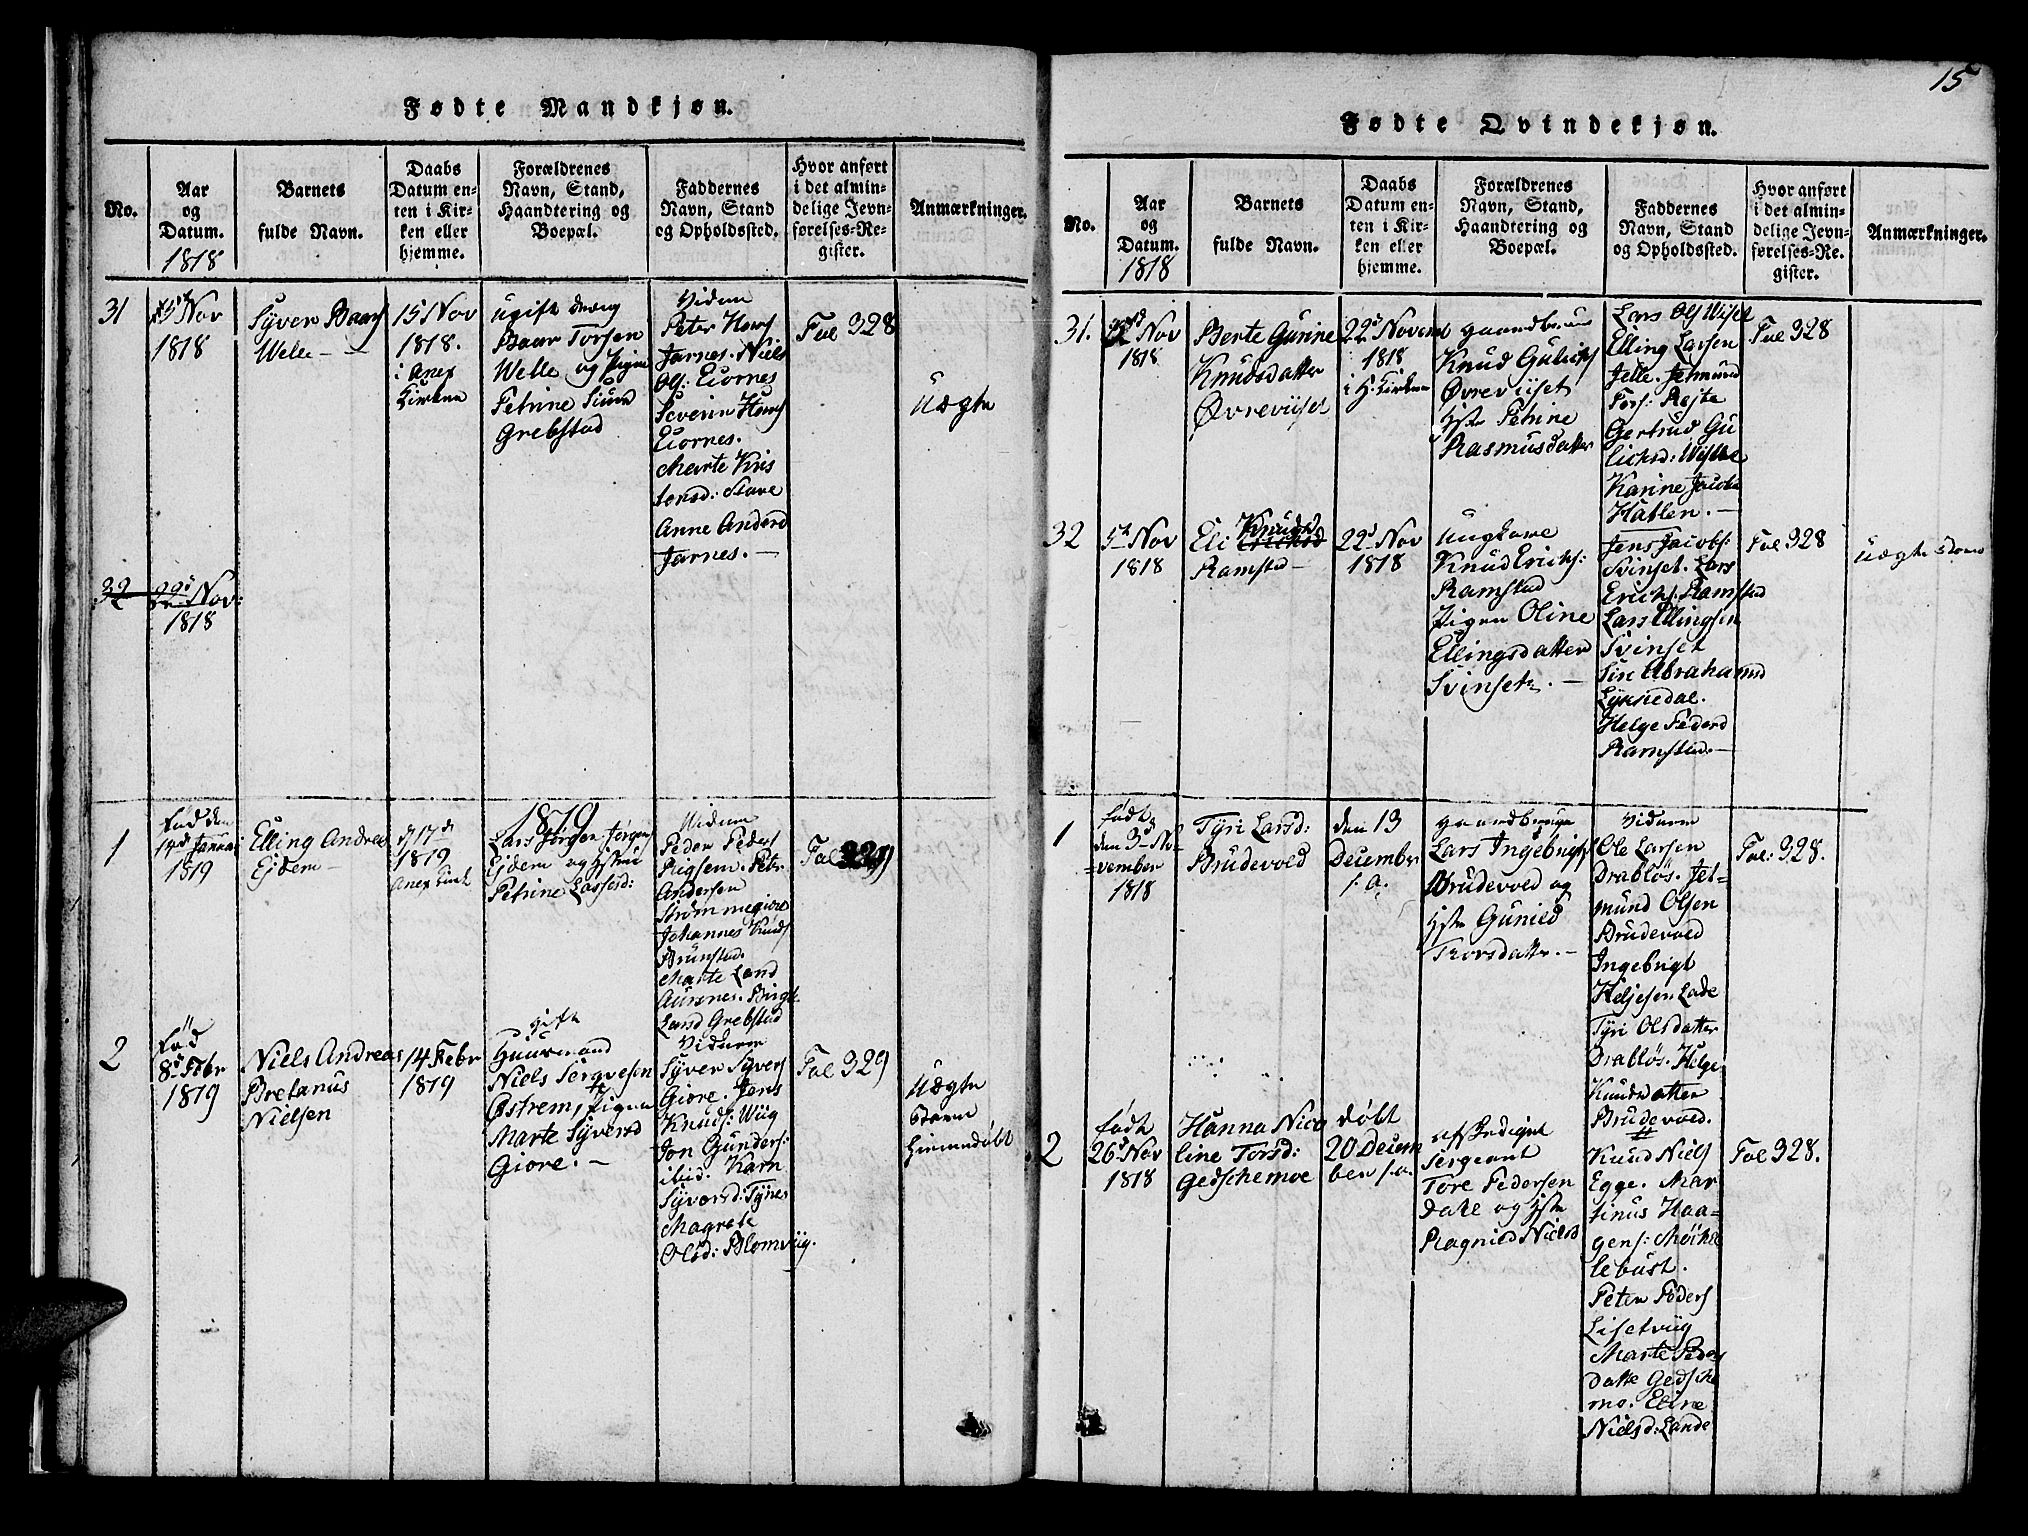 15
Fødte Mandkjøn.
No.
Aar
og
Datum.
1818
Barnets
fulde Navn.
Daabs
Datum en-
ten i Kir-
ken eller
hjemme.
Forældrenes
Navn, Stand,
Haandtering og
Boepæl.
Faddernes
Navn, Stand
og Opholdssted.
Hvor anført
i det almin-
delige Jevn-
førelses-Re-
gister.
Anmærkninger.
31
Nov
1818
Syver Baars
Welle - -
15 Nov
1818.
i Anex
Kirken
ugift dreng
Baar Torsen
Welle og Pigen
Petrine
Grebstad
Vidne
Peter Hans
Jarnes. Niels
Ols: Eiornes
Severin Hans
Eiornes.
Marte Kris
tensd: Stave
Anne Andersd
Jarnes. -
Fol 328
Uægte
32
22d Nov:
1818
1819
1
Fød den
14d Januar
1819
Elling Andreas
Ejdem -
d 17d
1819
Anex Kirk
Lars Jørgen Jørgens
Ejdem og Hustrue
Petrine Lassesd:
Vidne
Peder Peders
Andersen
Strømmegiore
Johannes Knuds
Brunstad.
Marte Land
Aursnes. Birgit
Larsd Grebstad
Fol 329
2
Fød
8d Febr
1819
Niels Andreas
Bretanus
Nielsen
14 Febr
1819
gift
Huusmand
Niels Sergvesen
Østrem, Pigen
Marte Syversd
Giøre. -
Vidne
Syver Syvers
Giøre. Jens
Knuds: Wiig
Jon Gunders:
ibid. Karn
Syversd: Tynes
Magrete
Olsd: Blomviig.
Fol 329
Uægte
Hiemmedøbt
Fødte Qvindekjøn.
No.
Aar
og
Datum.
1818
Barnets
fulde Navn.
Daabs
Datum en-
ten i Kir-
ken eller
hjemme.
Forældrenes
Navn, Stand,
Haandtering og
Boepæl.
Faddernes
Navn, Stand
og Opholdssted.
Hvor anført
i det almin-
delige Jevn-
førelses-Re-
gister.
Anmærkninger.
31.
Nov
1818
Berte Gurine
Knudsdatter
Øvreviset
22d Novemb
1818
i H. Kirken
gaardbruger
Knud Gulichs
Øvreviset
Hstr Petrine
Rasmusdatter
Lars Ols Wiset
Elling Larsen
Jelle. Jetmund
Tors: Røjte
Gertrud Gu
lichsd: Wiset
Karine Jacobs
Hatlen. -
Fol 328
32
5d Nov
1818
Eli Knudsd
Ramstad -
22d Nov
1818
Ungkarl
Knud Erichs:
Ramstad
Pigen Oline
Ellingsdatter
Svinset. -
Jens Jacobs:
Svinset. Lars
Erichs: Ramstad
Lars Ellingsen
Svinset
Siri Abrahamsd
Lykkedal.
Helge Pedersd
Ramstad. -
Fol 328
Uægte
1
Født
den 3d No-
vember
1818
Tyri Larsd:
Brudevold
den 13
December
s. a.
gaardbruger
Lars Ingebrigts
Brudevold og
Hstr Gunild
Thorsdatter. -
Vidner
Ole Larsen
Drabløs. Jet-
mund Olsen
Brudevold
Ingebrigt
Heljesen Lade
Tyri Olsdatter
Drabløs. Helge
Knudsdatter
Brudevold.
Fol: 328.
2
født
26d Nov
1818
Hanna Nico
line Torsd:
Gedschemoe
døbt
20 Decem
ber s. a.
afskediget
Sergeant
Tore Pedersen
Dale og Hstr
Ragnild Nielsd
Knud Niels
Egge. Mar
tinus Haa-
gens: Møikle
lebust.
Peter Peders
Lisetviig
Marte Peders
datte Gedsche
mo. Eline
Nielsd: Lande
Fol 328.